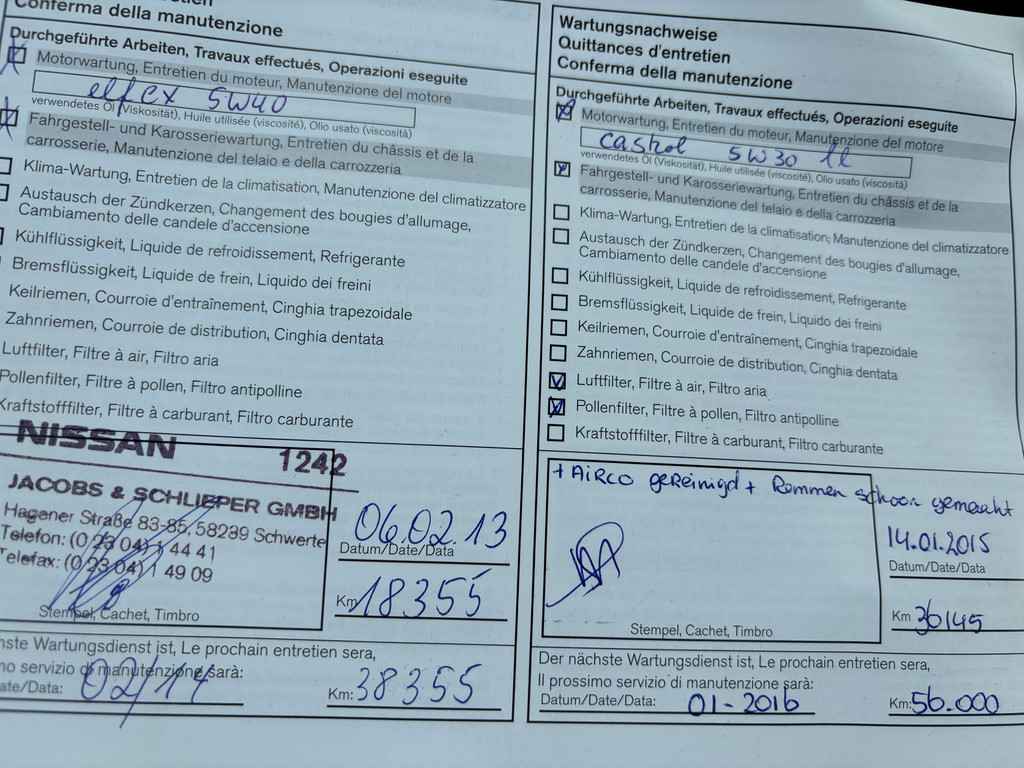 Conferma della manutenzione
Durchgeführte Arbeiten, Travaux effectués, Operazioni eseguite
Motorwartung, Entretien du moteur, Manutenzione del motore
5W40
verwendetes Öl (Viskosität), Huile utilisée (viscosité), Olio usato (viscosità)
Fahrgestell- und Karosseriewartung, Entretien du châssis et de la
carrosserie, Manutenzione del telaio e della carrozzeria
Klima-Wartung, Entretien de la climatisation, Manutenzione del climatizzatore
Austausch der Zündkerzen, Changement des bougies d'allumage,
Cambiamento delle candele d'accensione
Kühlflüssigkeit, Liquide de refroidissement, Refrigerante
Bremsflüssigkeit, Liquide de frein, Liquido dei freini
Keilriemen, Courroie d'entraînement, Cinghia trapezoidale
Zahnriemen, Courroie de distribution, Cinghia dentata
Luftfilter, Filtre à air, Filtro aria
Pollenfilter, Filtre à pollen, Filtro antipolline
Kraftstofffilter, Filtre à carburant, Filtro carburante
NISSAN 1242
JACOBS & SCHLIEPER GMBH
Hagener Straße 83-85, 58239 Schwerte
Telefon: (0 23 04) 1 44 41
Telefax: (0 23 04) 1 49 09
06.02.13
Datum/Date/Data
Km 18355
Stempel, Cachet, Timbro
hste Wartungsdienst ist, Le prochain entretien sera,
mo servizio di manutenzione sarà:
ate/Data: 02/14 Km: 38355
Wartungsnachweise
Quittances d'entretien
Conferma della manutenzione
Durchgeführte Arbeiten, Travaux effectués, Operazioni eseguite
Motorwartung, Entretien du moteur, Manutenzione del motore
castrol 5W30
verwendetes Öl (Viskosität), Huile utilisée (viscosité), Olio usato (viscosità)
Fahrgestell- und Karosseriewartung, Entretien du châssis et de la
carrosserie, Manutenzione del telaio e della carrozzeria
Klima-Wartung, Entretien de la climatisation, Manutenzione del climatizzatore
Austausch der Zündkerzen, Changement des bougies d'allumage,
Cambiamento delle candele d'accensione
Kühlflüssigkeit, Liquide de refroidissement, Refrigerante
Bremsflüssigkeit, Liquide de frein, Liquido dei freini
Keilriemen, Courroie d'entraînement, Cinghia trapezoidale
Zahnriemen, Courroie de distribution, Cinghia dentata
Luftfilter, Filtre à air, Filtro aria
Pollenfilter, Filtre à pollen, Filtro antipolline
Kraftstofffilter, Filtre à carburant, Filtro carburante
+ AiRCO geReinigd + Remmen schoon gemaakt
14.01.2015
Datum/Date/Data
Km 36145
Stempel, Cachet, Timbro
Der nächste Wartungsdienst ist, Le prochain entretien sera,
Il prossimo servizio di manutenzione sarà:
Datum/Date/Data: 01-2016 Km: 56.000